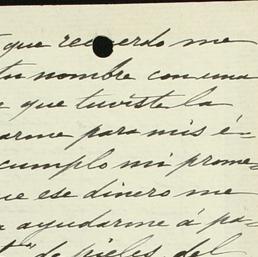 que recuerdo me
tu nombre con una
que tuviste la
arme para mis é-
cumplo mi prome-
ue ese dinero me
ayudarme á pa-
de pieles, del